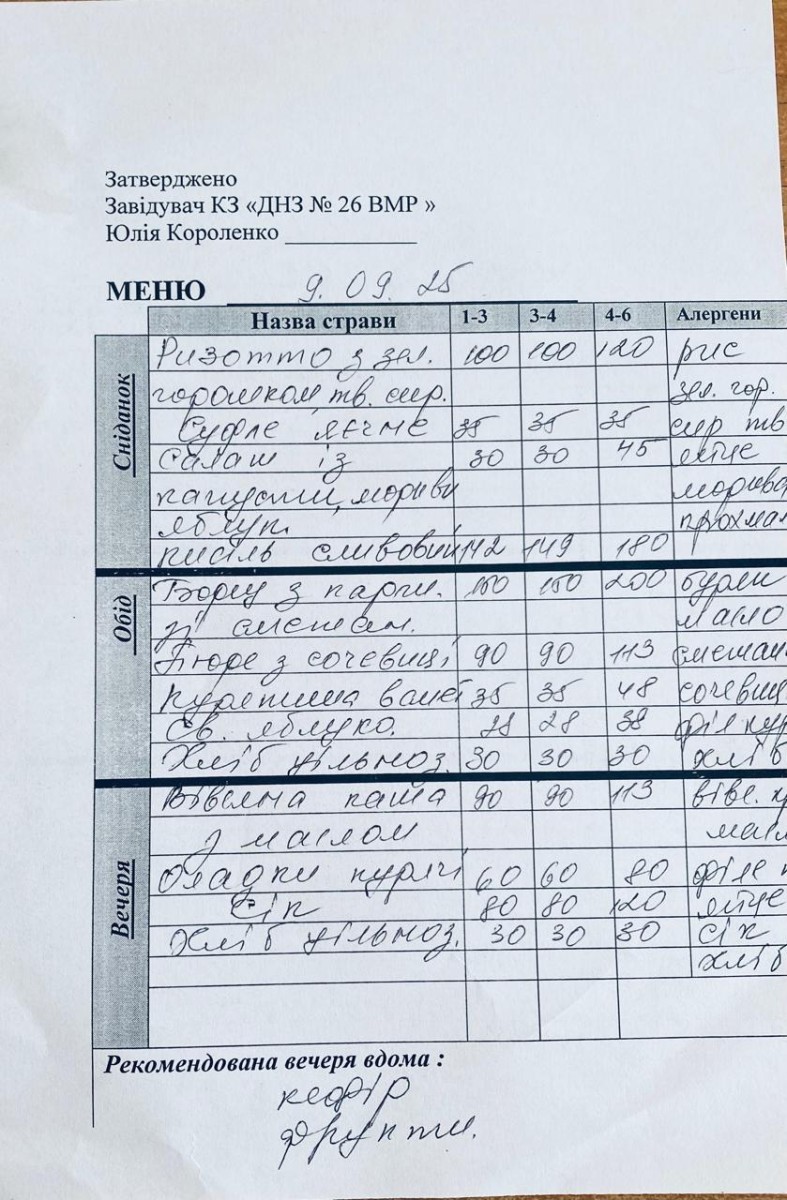 Затверджено
Завідувач КЗ «ДНЗ № 26 ВМР »
Юлія Короленко ____________
МЕНЮ 9. 09. 25
Назва страви 1-3 3-4 4-6 Алергени
Сніданок
Ризотто з зел. 100 100 120 рис
горошком тв. сир. зел. гор.
Суфле яєчне 35 35 35 сир тв
Салат із 30 30 45 яйце
капусти, моркви морква
яблук. крохмал
Кисіль сливовий 142 149 180
Обід
Борщ з карт. 150 150 200 буряк
зі сметан. масло
Пюре з сочевиці 90 90 113 сметан
Курятина 35 35 48 сочевиц
Св. яблуко. 28 28 38 філе кур
Хліб цільноз. 30 30 30 хліб
Вечеря
Вівсяна каша 90 90 113 вівс.
з маслом масл
Оладки курячі 60 60 80 філе
Сік 80 80 120 яйце
Хліб цільноз. 30 30 30 сік
хліб
Рекомендована вечеря вдома :
кефір
фрукти.